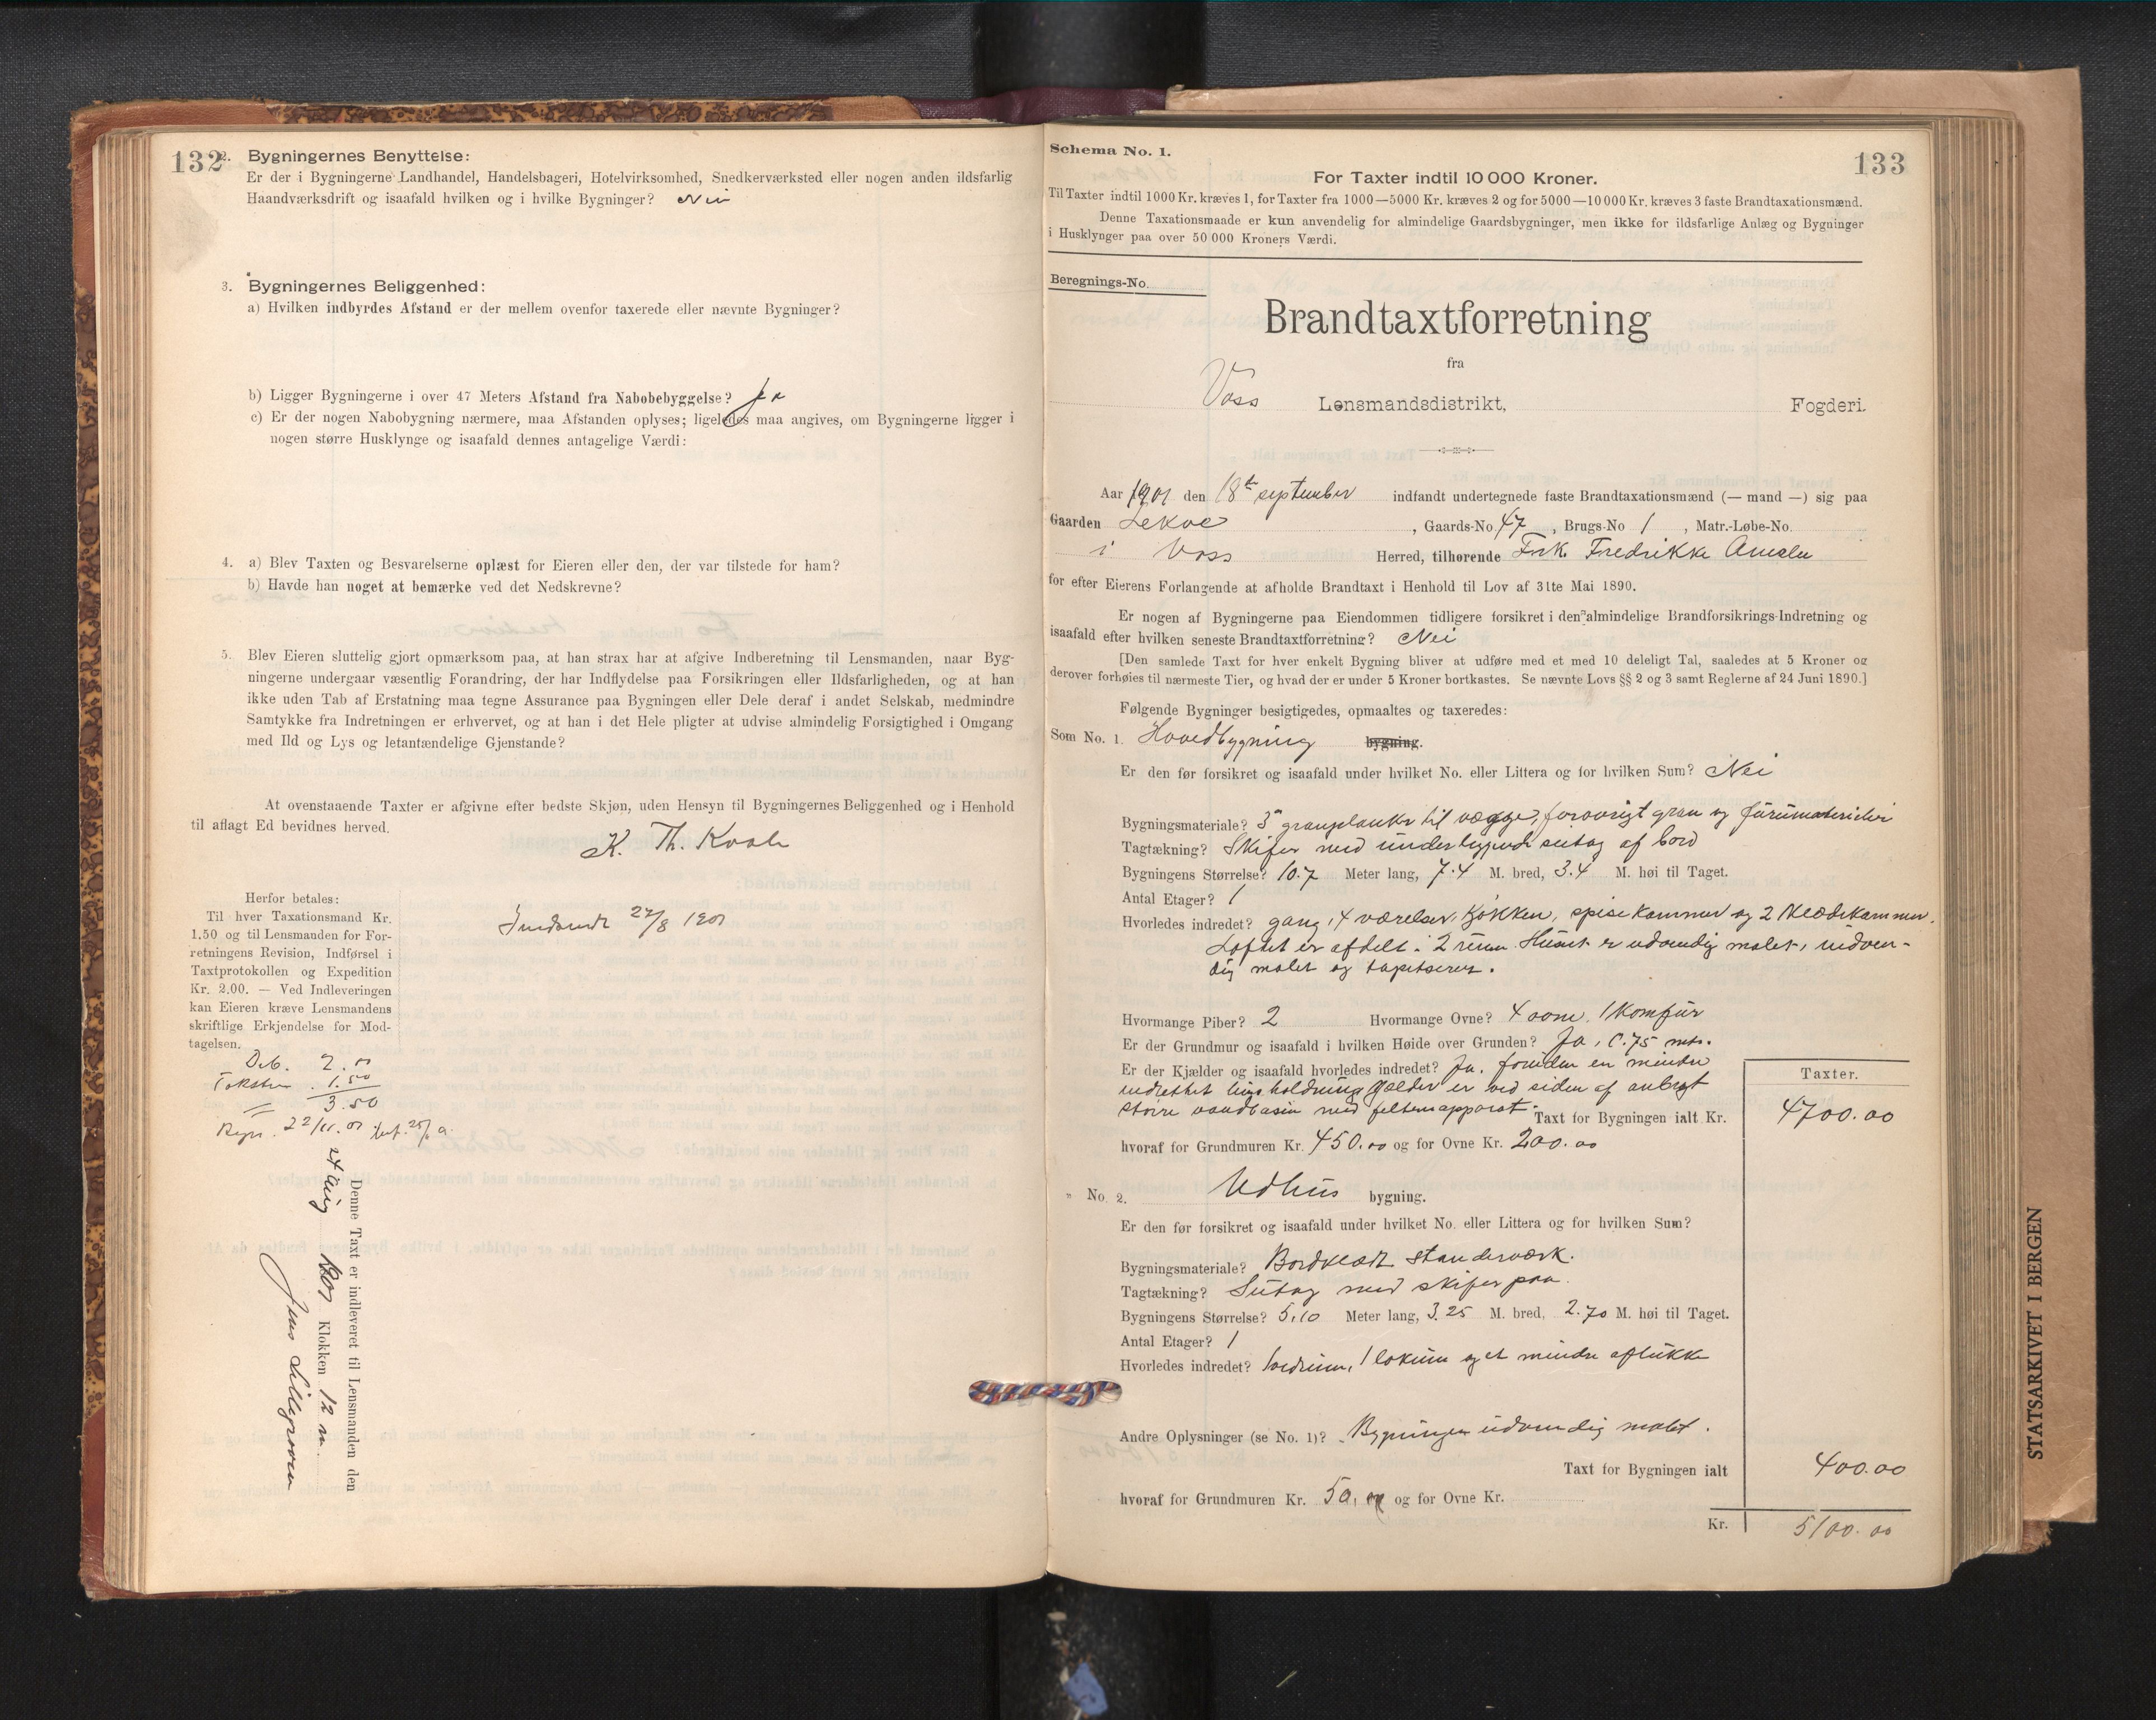 132
2. Bygningernes Benyttelse:
Er der i Bygningerne Landhandel, Handelsbageri, Hotelvirksomhed, Snedkerværksted eller nogen anden ildsfarlig
Haandværksdrift og isaafald hvilken og i hvilke Bygninger? Nei
3. Bygningernes Beliggenhed:
a) Hvilken indbyrdes Afstand er der mellem ovenfor taxerede eller nævnte Bygninger?
b) Ligger Bygningerne i over 47 Meters Afstand fra Nabobebyggelse? Ja
c) Er der nogen Nabobygning nærmere, maa Afstanden oplyses; ligeledes maa angives, om Bygningerne ligger i
nogen større Husklynge og isaafald dennes antagelige Værdi:
4. a) Blev Taxten og Besvarelserne oplæst for Eieren eller den, der var tilstede for ham?
b) Havde han noget at bemærke ved det Nedskrevne?
5. Blev Eieren sluttelig gjort opmærksom paa, at han strax har at afgive Indberetning til Lensmanden, naar Byg-
ningerne undergaar væsentlig Forandring, der har Indflydelse paa Forsikringen eller Ildsfarligheden, og at han
ikke uden Tab af Erstatning maa tegne Assurance paa Bygningen eller Dele deraf i andet Selskab, medmindre
Samtykke fra Indretningen er erhvervet, og at han i det Hele pligter at udvise almindelig Forsigtighed i Omgang
med Ild og Lys og letantændelige Gjenstande?
At ovenstaaende Taxter er afgivne efter bedste Skjøn, uden Hensyn til Bygningernes Beliggenhed og i Henhold
til aflagt Ed bevidnes herved.
K. Th.
Herfor betales:
Til hver Taxationsmand Kr.
1.50 og til Lensmanden for For-
retningens Revision, Indførsel i
Taxtprotokollen og Expedition
Kr. 2.00. — Ved Indleveringen
kan Eieren kræve Lensmandens
skriftlige Erkjendelse for Mod-
tagelsen.
27/8 1901
Deb. 2.00
1.50
3.50
Denne Taxt er indleveret til Lensmanden den
24 Aug 1901 Klokken 12 m.
Jens Lillegraven
133
Schema No. 1.
For Taxter indtil 10 000 Kroner.
Til Taxter indtil 1000 Kr. kræves 1, for Taxter fra 1000—5000 Kr. kræves 2 og for 5000—10 000 Kr. kræves 3 faste Brandtaxationsmænd.
Denne Taxationsmaade er kun anvendelig for almindelige Gaardsbygninger, men ikke for ildsfarlige Anlæg og Bygninger
i Husklynger paa over 50 000 Kroners Værdi.
Beregnings-No.
Brandtaxtforretning
fra
Voss Lensmandsdistrikt, Fogderi.
Aar 1901 den 18de september indfandt undertegnede faste Brandtaxationsmænd (— mand —) sig paa
Gaarden Lekve, Gaards-No. 47, Brugs-No 1, Matr.-Løbe-No.
i Voss Herred, tilhørende Frk. Fredrikke Ameln
for efter Eierens Forlangende at afholde Brandtaxt i Henhold til Lov af 31te Mai 1890.
Er nogen af Bygningerne paa Eiendommen tidligere forsikret i den almindelige Brandforsikrings-Indretning og
isaafald efter hvilken seneste Brandtaxtforretning? Nei
[Den samlede Taxt for hver enkelt Bygning bliver at udføre med et med 10 deleligt Tal, saaledes at 5 Kroner og
derover forhøies til nærmeste Tier, og hvad der er under 5 Kroner bortkastes. Se nævnte Lovs §§ 2 og 3 samt Reglerne af 24 Juni 1890.]
Følgende Bygninger besigtigedes, opmaaltes og taxeredes:
Som No. 1. Hovedbygning bygning.
Er den før forsikret og isaafald under hvilket No. eller Littera og for hvilken Sum? Nei
Bygningsmateriale? 3" granplanker til vægge, forøvrigt gran og furumaterialer
Tagtækning? Skifer med underliggende sutag af bord
Bygningens Størrelse? 10.7 Meter lang, 7.4 M. bred, 3.4 M. høi til Taget.
Antal Etager? 1
Hvorledes indredet? gang, 4 værelser, Kjøkken, spisekammer og 2 Klædekammer.
Loftet er afdelt i 2 rum. Huset er udvendig malet, indven-
dig malet og tapetseret.
Hvormange Piber? 2 Hvormange Ovne? 4 ovne, 1 Komfur
Er der Grundmur og isaafald i hvilken Høide over Grunden? Ja, 0.75 mtr.
Er der Kjælder og isaafald hvorledes indredet? Ja, foruden en mindre
indrettet kjælder er ved siden af anbragt
større vandbasin med
Taxt for Bygningen ialt Kr.
Taxter.
4700.00
hvoraf for Grundmuren Kr. 450.00 og for Ovne Kr. 200.00
" No. 2. Udhus bygning.
Er den før forsikret og isaafald under hvilket No. eller Littera og for hvilken Sum?
Bygningsmateriale? Bordklædt standerværk.
Tagtækning? Sutag med skifer paa.
Bygningens Størrelse? 5,10 Meter lang, 3.25 M. bred, 2.70 M. høi til Taget.
Antal Etager? 1
Hvorledes indredet? Vedrum, 1 lokum og et mindre aflukke
Andre Oplysninger (se No. 1)? Bygningen udvendig malet.
Taxt for Bygningen ialt
400.00
hvoraf for Grundmuren Kr. 50,00 og for Ovne Kr.
Kr. 5100.00
STATSARKIVET I BERGEN